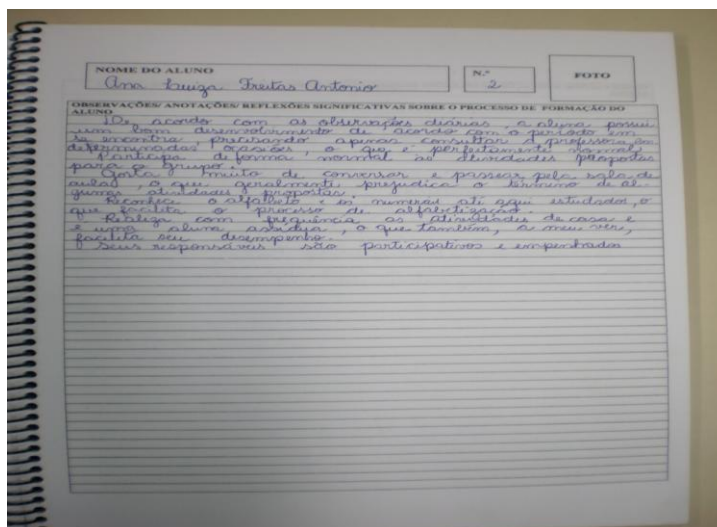 NOME DO ALUNO
Ana Luiza Freitas Antonio
N.º
2
FOTO
OBSERVAÇÕES/ ANOTAÇÕES/ REFLEXÕES SIGNIFICATIVAS SOBRE O PROCESSO DE FORMAÇÃO DO
ALUNO
De acordo com as observações diárias, a aluna possui
um bom desenvolvimento de acordo com o período em
se encontra, precisando apenas consultar a professora em
determinadas ocasiões, o que é perfeitamente normal.
Participa de forma normal as atividades propostas
para o grupo.
Gosta muito de conversar e passear pela sala de
aula, o que geralmente prejudica o término de al-
gumas atividades propostas.
Reconhece o alfabeto e os numerais até aqui estudados, o
que facilita o processo de alfabetização.
Realiza com frequência as atividades de casa e
é uma aluna assídua, o que também, a meu ver,
facilita seu desempenho.
Seus responsáveis são participativos e empenhados